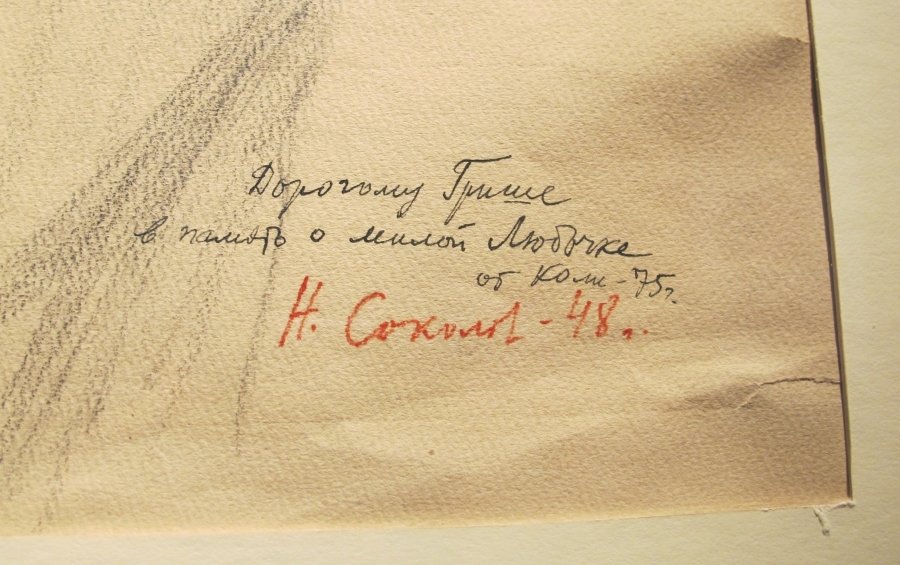 Дорогому Грише
в память о милой Любочке
от Коли -75г.
Н. Соколов - 48 г.